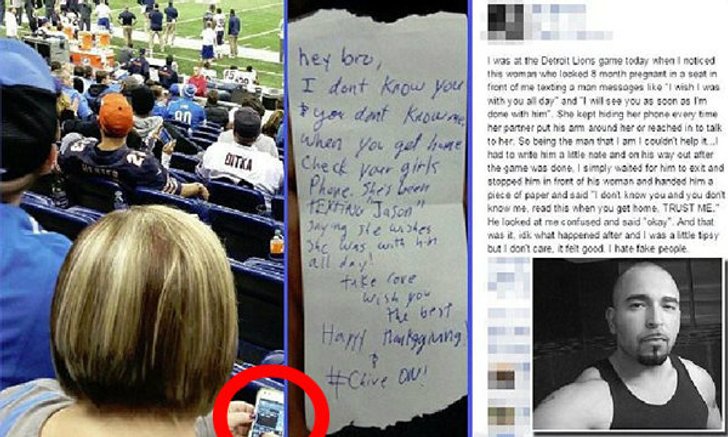 DITKA
90
hey bro,
I dont know you
& you dont know me,
when you get home
Check your girls
Phone. She's been
TEXTING "Jason"
Saying she wishes
She was with him
all day!
take care
wish you
the best
Happy Thanksgiving!
&
#Chive ON!
I was at the Detroit Lions game today when I noticed
this woman who looked 8 month pregnant in a seat in
front of me texting a man messages like "I wish I was
with you all day" and "I will see you as soon as I'm
done with him". She kept hiding her phone every time
her partner put his arm around her or reached in to talk
to her. So being the man that I am I couldn't help it...I
had to write him a little note and on his way out after
the game was done, I simply waited for him to exit and
stopped him in front of his woman and handed him a
piece of paper and said "I don't know you and you don't
know me, read this when you get home, TRUST ME."
He looked at me confused and said "okay". And that
was it, idk what happened after and I was a little tipsy
but I don't care, it felt good. I hate fake people.